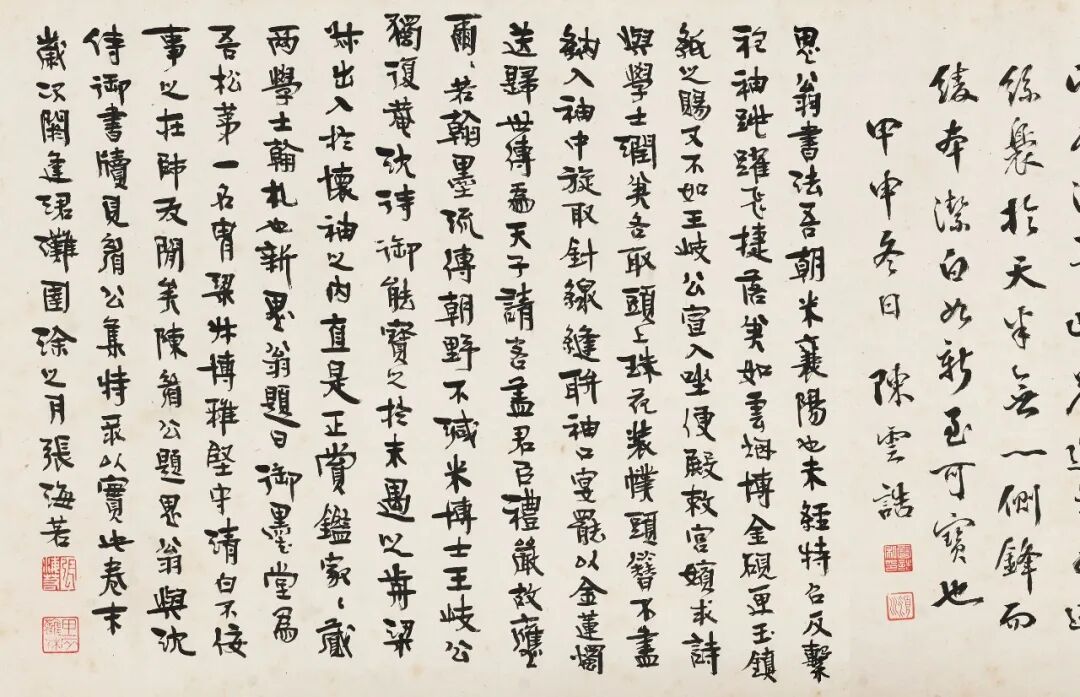 絲裊於天半無一側鋒而
綾本潔白如新至可寶也
甲申冬日 陳雲誥
思翁書法吾朝米襄陽也未經特召反繫
袍袖跳躍飛捷落筆如雲烟博金硯匣玉鎮
紙之賜又不如王岐公宣入坐便殿敕宮嬪求詩
與學士潤筆各取頭上珠花裝幞頭簪不盡
納入袖中旋取針線縫聯袖口宴罷以金蓮燭
送歸世傳為天子請客盖君臣禮嚴故應
爾〻若翰墨流傳朝野不减米博士王岐公
獨復菴沈侍御能寶之於未遇以前梁
叔出入於懷袖之内直是正賞鑑家〻藏
两學士翰札也新思翁題曰御墨堂爲
吾松第一名胄梁叔博雅堅守清白不佞
事之在師友間矣陳眉公題思翁與沈
侍御書牘見眉公集特录以實此卷末
歲次閼逢涒灘圉涂之月張海若